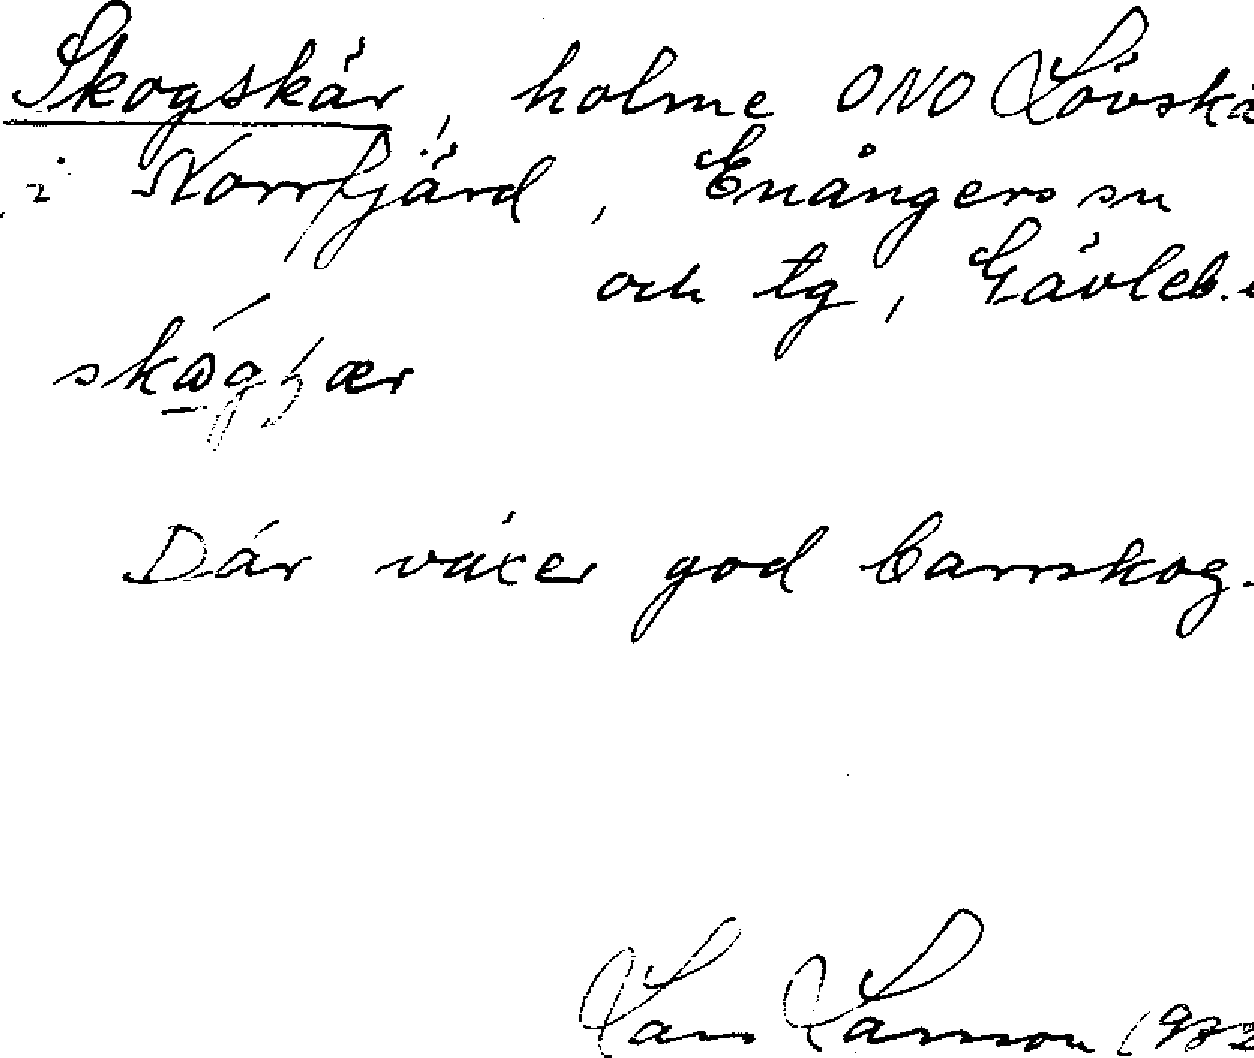 Skogskär, holme ONO Lövskä
i Norrfjärd, Enångers sn
och tg, Gävleb.
Där växer god barrskog.
Lars Larsson 1932